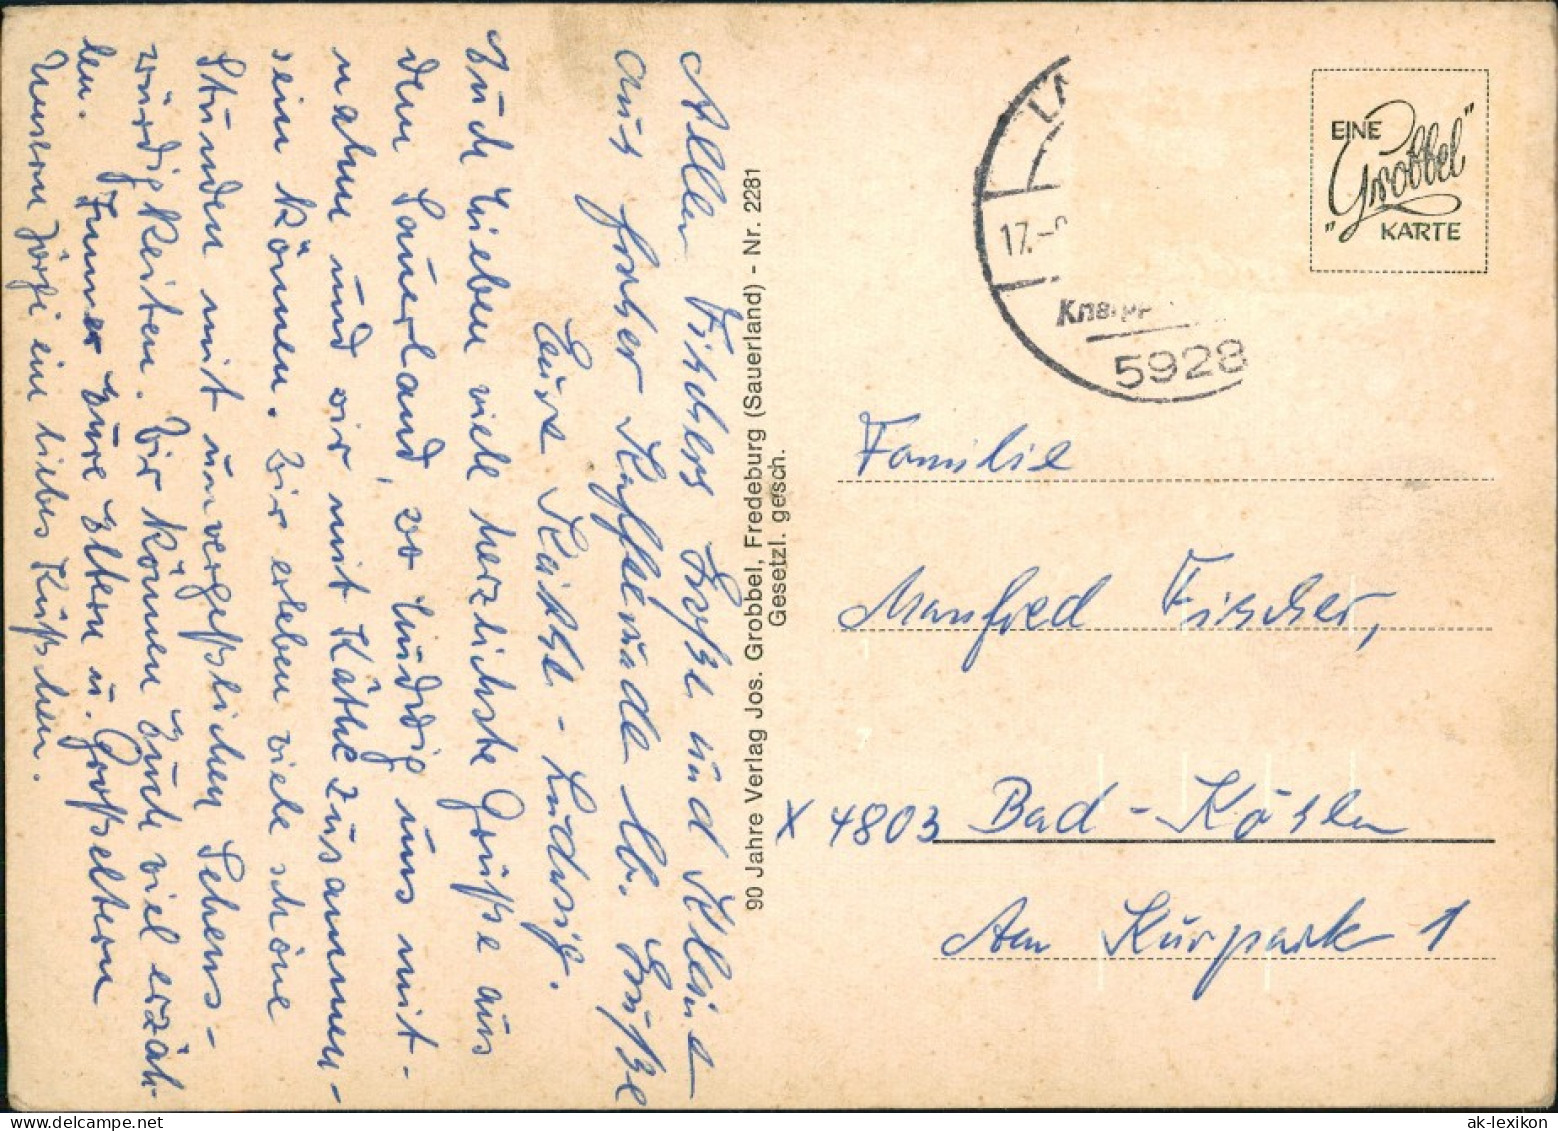 Allen Fischers Große und Kleine
aus froher Kaffeerunde lb. Grüße
Eure Käthe - Ludwig.
Euch Lieben viele herzlichste Grüße aus
dem Sauerland, wo Ludwig uns mit-
nahm und wir mit Käthe zusammen-
sein können. Wir erleben viele schöne
Stunden mit unvergeßlichen Sehens-
würdigkeiten. Wir können Euch viel erzäh-
len. Immer Eure Eltern u. Großeltern
Unserm Jörgi ein liebes Küßchen.
90 Jahre Verlag Jos. Grobbel, Fredeburg (Sauerland) - Nr. 2281
Gesetzl. gesch.
17.-
5928
EINE
"Grobbel"
KARTE
Familie
Manfred Fischer,
X 4803 Bad-Kösen
Am Kurpark 1
ak-lexikon